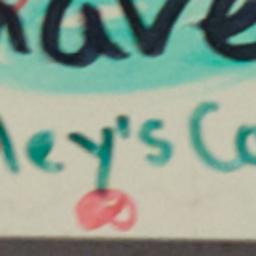 have
ley's Co